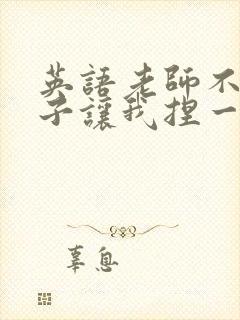 英語老師不
子讓我捏一
辜息